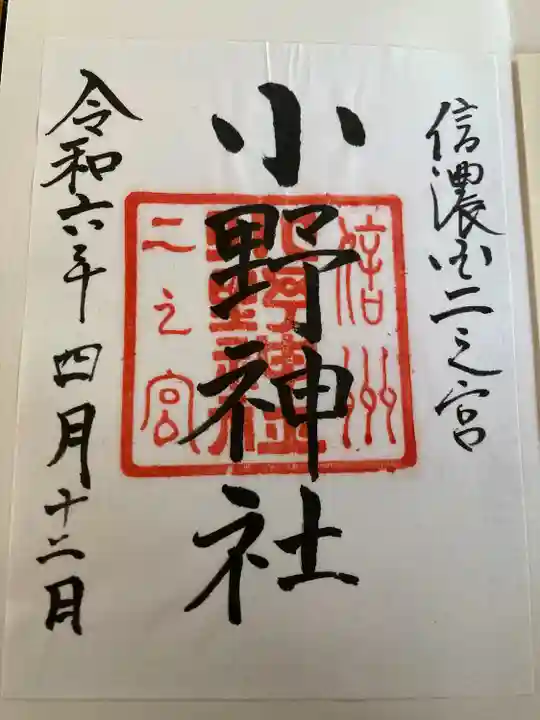 信濃国二之宮
小野神社
信州
二之宮
令和六年四月十二日